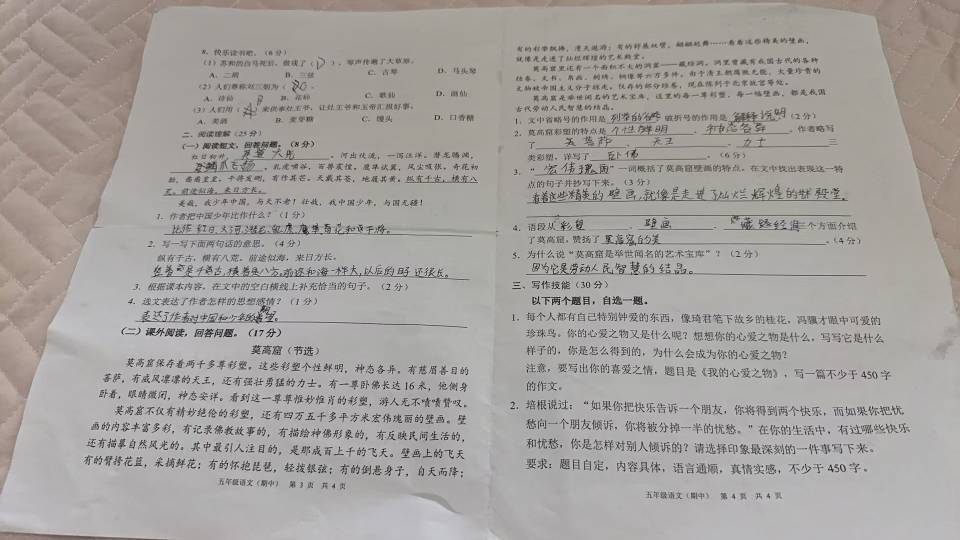 8. 快乐读书吧。(6分)
(1) 苏和的白马死后,做成了( D ),琴声传遍了大草原。
A. 二胡 B. 三弦 C. 古琴 D. 马头琴
(2) 人们尊称刘三姐为( )。
A. 诗仙 B. C. 歌仙 D. 画仙
(3) 人们用( )来供奉灶王爷,让灶王爷和玉帝汇报好事。
A. 美酒 B. 麦芽糖 C. 馒头 D. 口香糖
二、阅读理解(25分)
(一)阅读短文,回答问题。(8分)
红日初升,其道大光。河出伏流,一泻汪洋。潜龙腾渊,
。乳虎啸谷,百兽震惶。鹰隼试翼,风尘吸张。奇花初
胎,矞矞皇皇。干将发硎,有作其芒。天戴其苍,地履其黄。纵有千古,横有八
荒。前途似海,来日方长。
美哉,我少年中国,与天不老!壮哉,我中国少年,与国无疆!
1. 作者把中国少年比作什么?(1分)
2. 写一写下面两句话的意思。(4分)
纵有千古,横有八荒。前途似海,来日方长。
3. 根据课本内容,在文中的空白横线上补充恰当的句子。(2分)
4. 选文表达了作者怎样的思想感情?(1分)
表达了作者对中国和少年的
(二)课外阅读,回答问题。(17分)
莫高窟(节选)
莫高窟保存着两千多尊彩塑。这些彩塑个性鲜明,神态各异。有慈眉善目的
菩萨,有威风凛凛的天王,还有强壮勇猛的力士。有一尊卧佛长达16米,他侧身
卧着,眼睛微闭,神态安详。看到这一尊尊惟妙惟肖的彩塑,游人无不啧啧赞叹。
莫高窟不仅有精妙绝伦的彩塑,还有四万五千多平方米宏伟瑰丽的壁画。壁
画的内容丰富多彩,有记录佛教故事的,有描绘神佛形象的,有反映民间生活的,
还有描摹自然风光的。其中最引人注目的,是那成百上千的飞天。壁画上的飞天
有的臂挎花篮,采摘鲜花;有的怀抱琵琶,轻拨银弦;有的倒悬身子,自天而降;
五年级语文(期中) 第 3 页 共 4 页
有的彩带飘拂,漫天遨游;有的舒展双臂,翩翩起舞……看着这些精美的壁画,
就像是走进了灿烂辉煌的艺术殿堂。
莫高窟里还有一个面积不大的洞窟——藏经洞。洞里曾藏有我国古代的各种
经卷、文书、帛画、刺绣、铜像等六万多件。由于清王朝腐败无能,大量珍贵的
文物被帝国主义分子掠走。仅存的部分经卷,现在陈列于北京故宫等处。
莫高窟是举世闻名的艺术宝库。这里的每一尊彩塑、每一幅壁画,都是我国
古代劳动人民智慧的结晶。
1. 文中省略号的作用是 列举的省略 破折号的作用是 解释说明 (2分)
2. 莫高窟彩塑的特点是 个性鲜明 、 神态各异 ,作者略写
了 菩萨 、 天王 、 力士 三
类彩塑,详写了 卧佛 。(6分)
3. “ 宏伟瑰丽 ”一词概括了莫高窟壁画的特点,在文中找出表现这一特
点的句子并抄写下来。(3分)
看着这些精美的壁画,就像是走进了灿烂辉煌的艺术殿堂。
4. 语段从 彩塑 、 壁画 、 藏经洞 三个方面介绍
了莫高窟,赞扬了 莫高窟的美 。(4分)
5. 为什么说“莫高窟是举世闻名的艺术宝库”?(2分)
因为它是劳动人民智慧的结晶。
三、写作技能(30分)
以下两个题目,自选一题。
1. 每个人都有自己特别钟爱的东西,像琦君笔下故乡的桂花,冯骥才眼中可爱的
珍珠鸟。你的心爱之物又是什么呢?想想你的心爱之物是什么,写写它是什么
样子的,你是怎么得到的,为什么会成为你的心爱之物?
注意,要写出你的喜爱之情,题目是《我的心爱之物》,写一篇不少于 450 字
的作文。
2. 培根说过:“如果你把快乐告诉一个朋友,你将得到两个快乐,而如果你把忧
愁向一个朋友倾诉,你将被分掉一半的忧愁。”在你的生活中,有过哪些快乐
和忧愁,你是怎样对别人倾诉的?请选择印象最深刻的一件事写下来。
要求:题目自定,内容具体,语言通顺,真情实感,不少于 450 字。
五年级语文(期中) 第 4 页 共 4 页